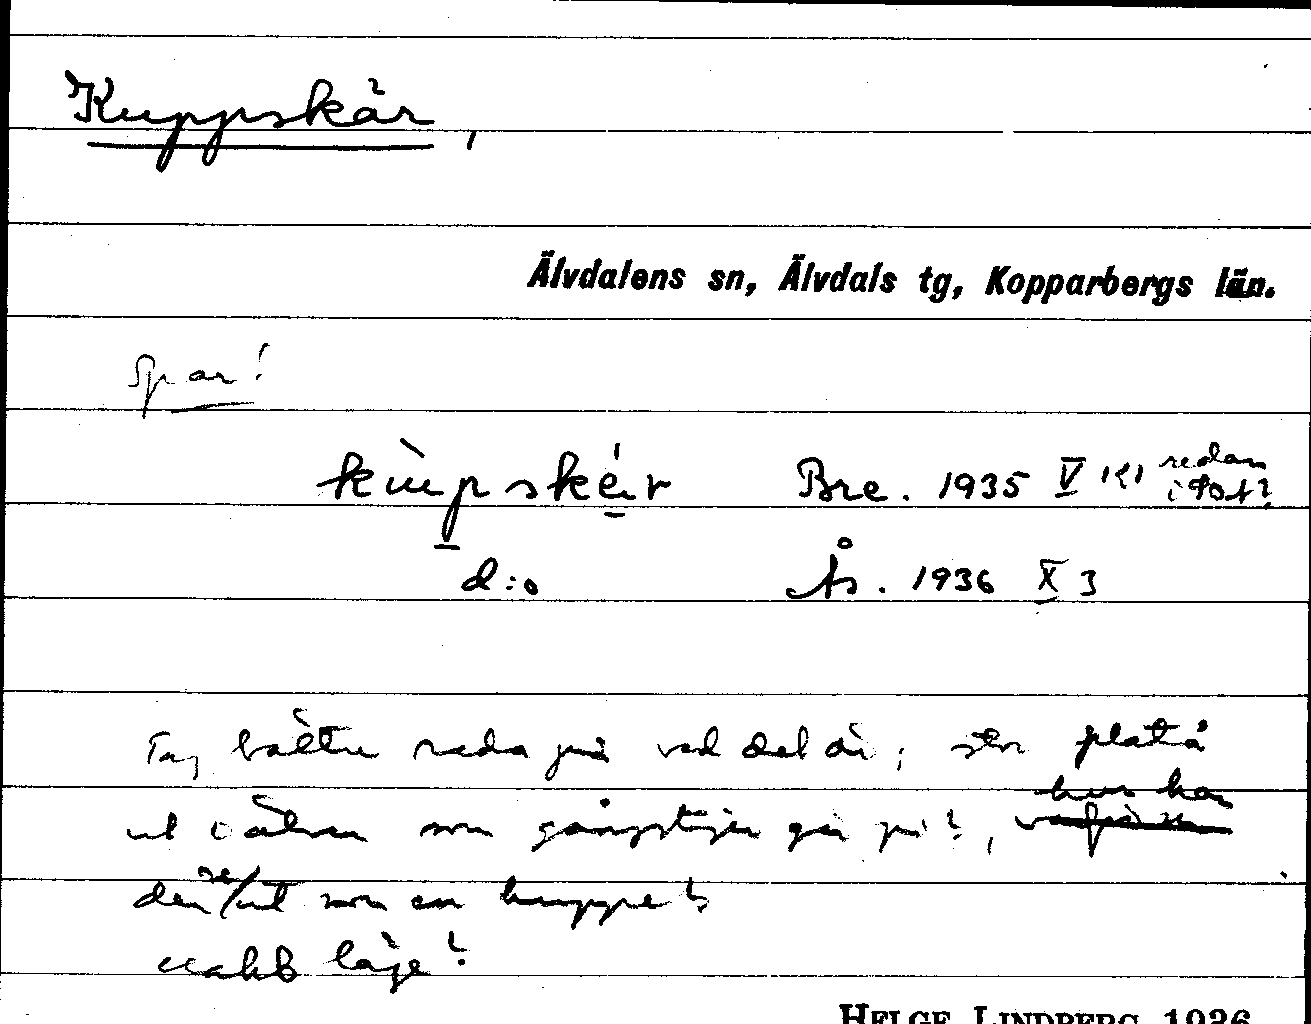 Kuppskär,
Älvdalens sn, Älvdals tg, Kopparbergs län.
Spar!
kùpskér Bre. 1935 V 121 redan
d:o Ås. 1936 X 3
Tag bättre reda på vad det är; stor platå
ut i älven som gångstigen går på?, hur kan
den se ut som en kuppe?
exakt läge?
HELGE LINDBERG 1936